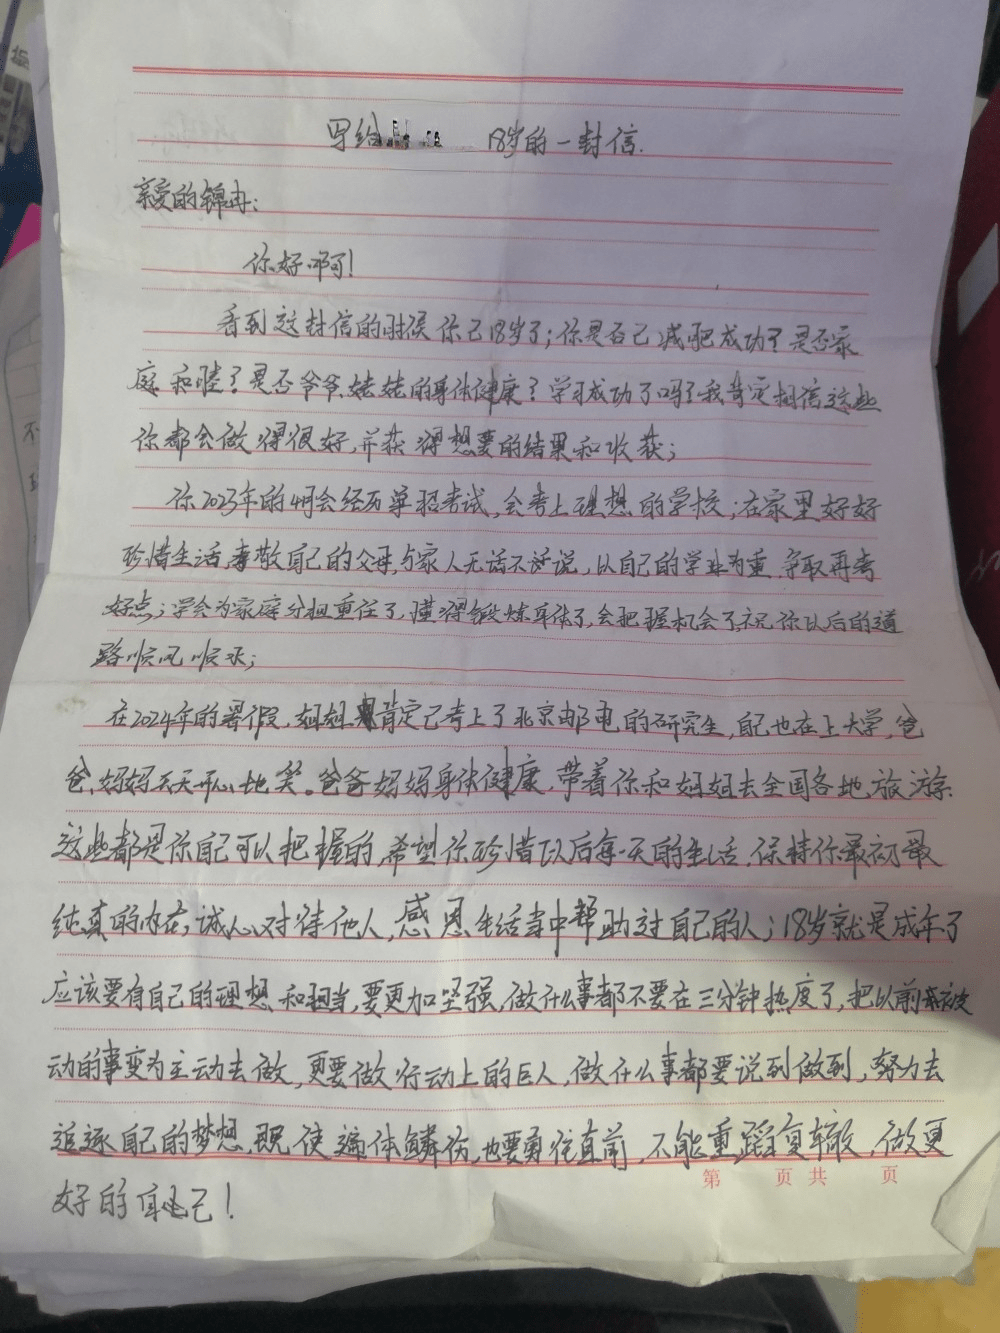 写给 18岁的一封信.
亲爱的锦冉:
你好啊!
看到这封信的时候你已18岁了;你是否已减肥成功?是否家
庭和睦?是否爷爷、姥姥的身体健康?学习成功了吗?我肯定相信这些
你都会做得很好,并获得想要的结果和收获;
你2023年的4月会经历单招考试,会考上理想的学校;在家里好好
珍惜生活,孝敬自己的父母,与家人无话不说,以自己的学业为重,争取再考
好点;学会为家庭分担重任了,懂得锻炼身体了,会把握机会了,祝你以后的道
路顺风顺水;
在2024年的暑假,姐姐肯定已考上了北京邮电的研究生,自己也在上大学,爸
爸、妈妈天天开心地笑。爸爸妈妈身体健康,带着你和姐姐去全国各地旅游.
这些都是你自己可以把握的,希望你珍惜以后每一天的生活,保持你最初最
纯真的内在,诚心对待他人,感恩生活当中帮助过自己的人;18岁就是成年了
应该要有自己的理想和担当,要更加坚强,做什么事都不要在三分钟热度了,把以前被
动的事变为主动去做,更要做行动上的巨人,做什么事都要说到做到,努力去
追逐自己的梦想,既使遍体鳞伤,也要勇往直前,不能重蹈复辙,做更
好的自己!
第 页共 页